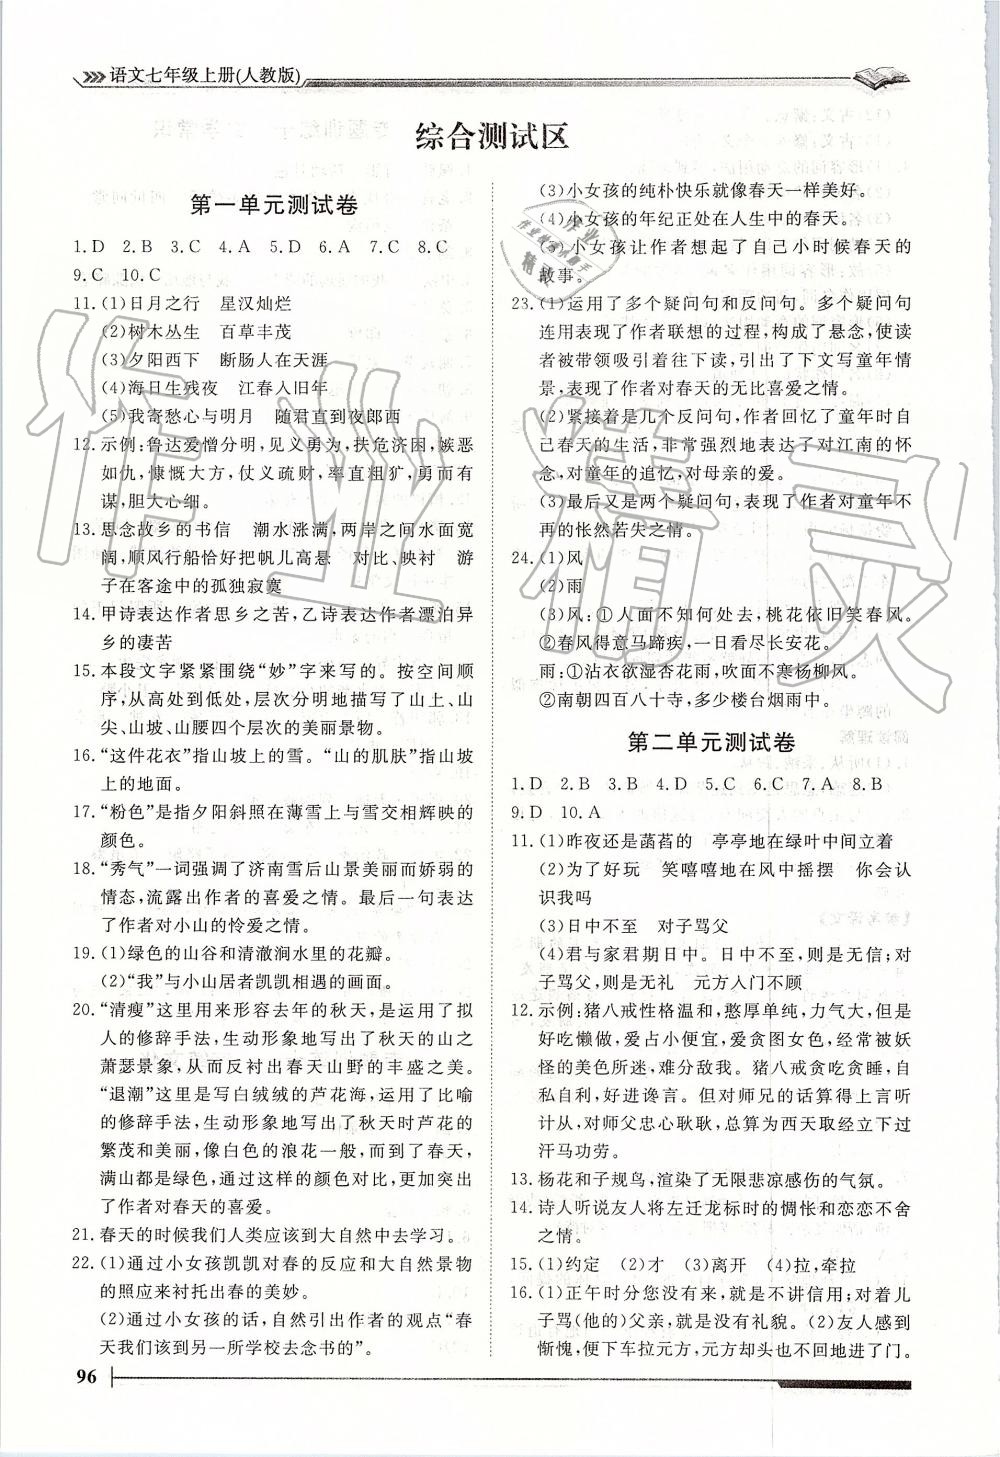 语文七年级上册(人教版)
综合测试区
第一单元测试卷
1. D 2. B 3. C 4. A 5. D 6. A 7. C 8. C
9. C 10. C
11. (1)日月之行 星汉灿烂
(2)树木丛生 百草丰茂
(3)夕阳西下 断肠人在天涯
(4)海日生残夜 江春入旧年
(5)我寄愁心与明月 随君直到夜郎西
12. 示例:鲁达爱憎分明,见义勇为,扶危济困,嫉恶
如仇,慷慨大方,仗义疏财,率直粗犷,勇而有
谋,胆大心细。
13. 思念故乡的书信 潮水涨满,两岸之间水面宽
阔,顺风行船恰好把帆儿高悬 对比、映衬 游
子在客途中的孤独寂寞
14. 甲诗表达作者思乡之苦,乙诗表达作者漂泊异
乡的凄苦
15. 本段文字紧紧围绕“妙”字来写的。按空间顺
序,从高处到低处,层次分明地描写了山上、山
尖、山坡、山腰四个层次的美丽景物。
16. “这件花衣”指山坡上的雪。“山的肌肤”指山坡
上的地面。
17. “粉色”是指夕阳斜照在薄雪上与雪交相辉映的
颜色。
18. “秀气”一词强调了济南雪后山景美丽而娇弱的
情态,流露出作者的喜爱之情。最后一句表达
了作者对小山的怜爱之情。
19. (1)绿色的山谷和清澈涧水里的花瓣。
(2)“我”与小山居者凯凯相遇的画面。
20. “清瘦”这里用来形容去年的秋天,是运用了拟
人的修辞手法,生动形象地写出了秋天的山之
萧瑟景象,从而反衬出春天山野的丰盛之美。
“退潮”这里用来写白绒绒的芦花海,运用了比喻
的修辞手法,生动形象地写出了秋天时芦花的
繁茂和美丽,像白色的浪花一样。而在春天里,
满山都是绿色,通过这样的颜色对比,更加突出
了作者对春天的喜爱。
21. 春天的时候我们人类应该到大自然中去学习。
22. (1)通过小女孩凯凯对春的反应和大自然景物
的照应来衬托出春的美妙。
(2)通过小女孩的话,自然引出作者的观点“春
天我们该到另一所学校去念书的”。
(3)小女孩的纯朴快乐就像春天一样美好。
(4)小女孩的年纪正处在人生中的春天。
(5)小女孩让作者想起了自己小时候春天的
故事。
23. (1)运用了多个疑问句和反问句。多个疑问句
连用表现了作者联想的过程,构成了悬念,使读
者被带领吸引着往下读,引出了下文写童年情
景,表现了作者对春天的无比喜爱之情。
(2)紧接着是几个反问句,作者回忆了童年时自
己春天的生活,非常强烈地表达了对江南的怀
念、对童年的追忆,对母亲的爱。
(3)最后又是两个疑问句,表现了作者对童年不
再的怅然若失之情。
24. (1)风
(2)雨
(3)风:①人面不知何处去,桃花依旧笑春风。
②春风得意马蹄疾,一日看尽长安花。
雨:①沾衣欲湿杏花雨,吹面不寒杨柳风。
②南朝四百八十寺,多少楼台烟雨中。
第二单元测试卷
1. D 2. B 3. B 4. D 5. C 6. C 7. A 8. B
9. D 10. A
11. (1)昨夜还是菡萏的 亭亭地在绿叶中间立着
(2)为了好玩 笑嘻嘻地在风中摇摆 你会认
识我吗
(3)日中不至 对子骂父
(4)君与家君期日中。日中不至,则是无信;对
子骂父,则是无礼 元方入门不顾
12. 示例:猪八戒性格温和,憨厚单纯,力气大,但是
好吃懒做,爱占小便宜,爱贪图女色,经常被妖
怪的美色所迷,难分敌我。猪八戒贪吃贪睡,自
私自利,好进谗言。但对师兄的话算得上言听
计从,对师父忠心耿耿,总算为西天取经立下过
汗马功劳。
13. 杨花和子规鸟,渲染了无限悲凉感伤的气氛。
14. 诗人听说友人将左迁龙标时的惆怅和恋恋不舍
之情。
15. (1)约定 (2)才 (3)离开 (4)拉,牵拉
16. (1)正午时分您没有来,就是不讲信用;对着儿
子骂(他的)父亲,就是没有礼貌。(2)友人感到
惭愧,便下车拉元方,元方却头也不回进了门。
96
作业精灵